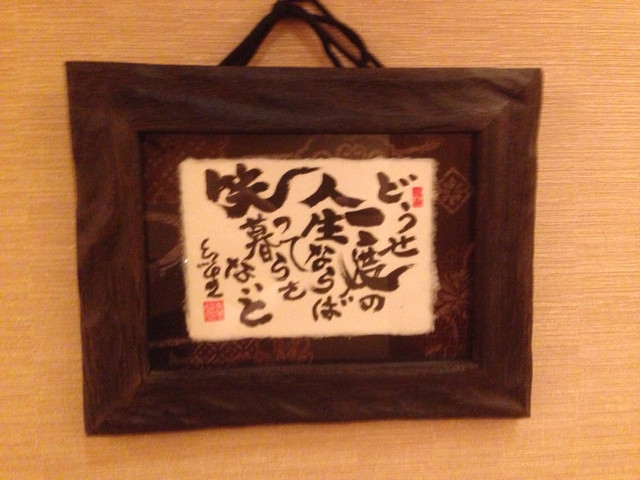 どうせ
一度の
人生ならば
笑って
暮らさ
ないと